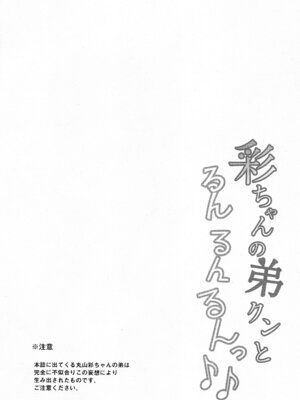 彩ちゃんの弟クンと
るんるんるんっ♪♪
※注意
本誌に出てくる丸山彩ちゃんの弟は
完全に不似合りこの妄想により
生み出されたものです。
ご注意ください。